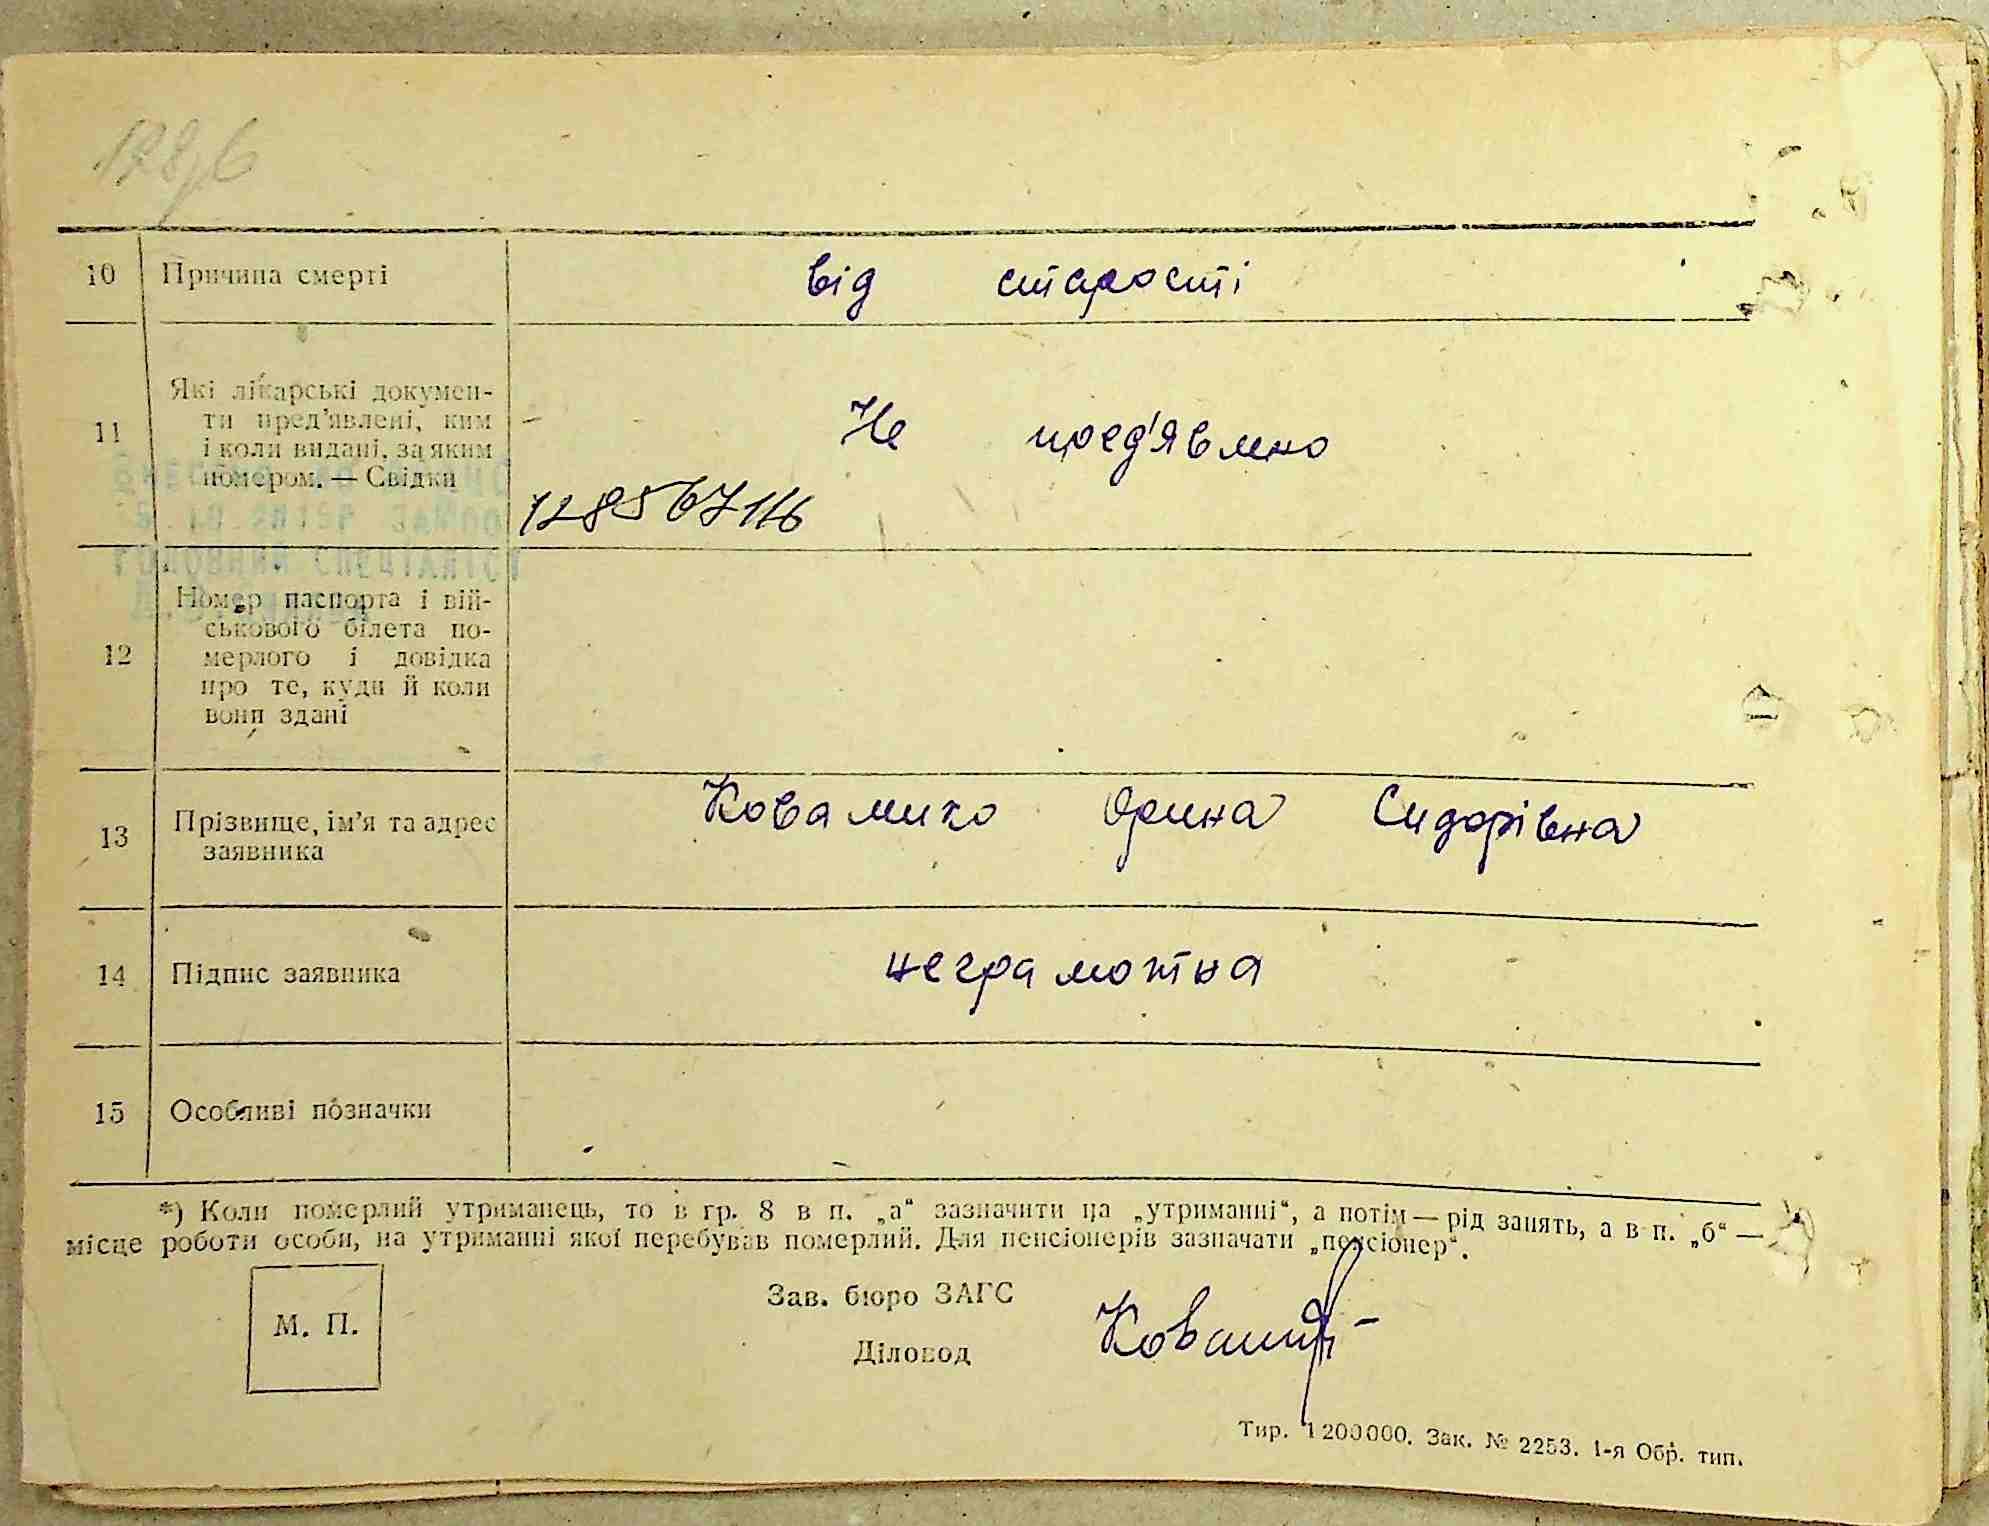 10 Причина смерті від старості
11 Які лікарські докумен-
ти пред'явлені, ким Не пред'явлено
і коли видані, за яким
номером. — Свідки
ГОЛОВНИЙ СПЕЦІАЛІСТ
12 Номер паспорта і вій-
ськового білета по-
мерлого і довідка
про те, куди й коли
вони здані
13 Прізвище, ім'я та адрес
заявника
Орина Сидорівна
14 Підпис заявника неграмотна
15 Особливі позначки
*) Коли померлий утриманець, то в гр. 8 в п. „а“ зазначити на „утриманні“, а потім — рід занять, а в п. „б“ —
місце роботи особи, на утриманні якої перебував померлий. Для пенсіонерів зазначати „пенсіонер“.
М. П.
Зав. бюро ЗАГС
Діловод
Тир. 1 200000. Зак. № 2253. 1-я Обр. тип.